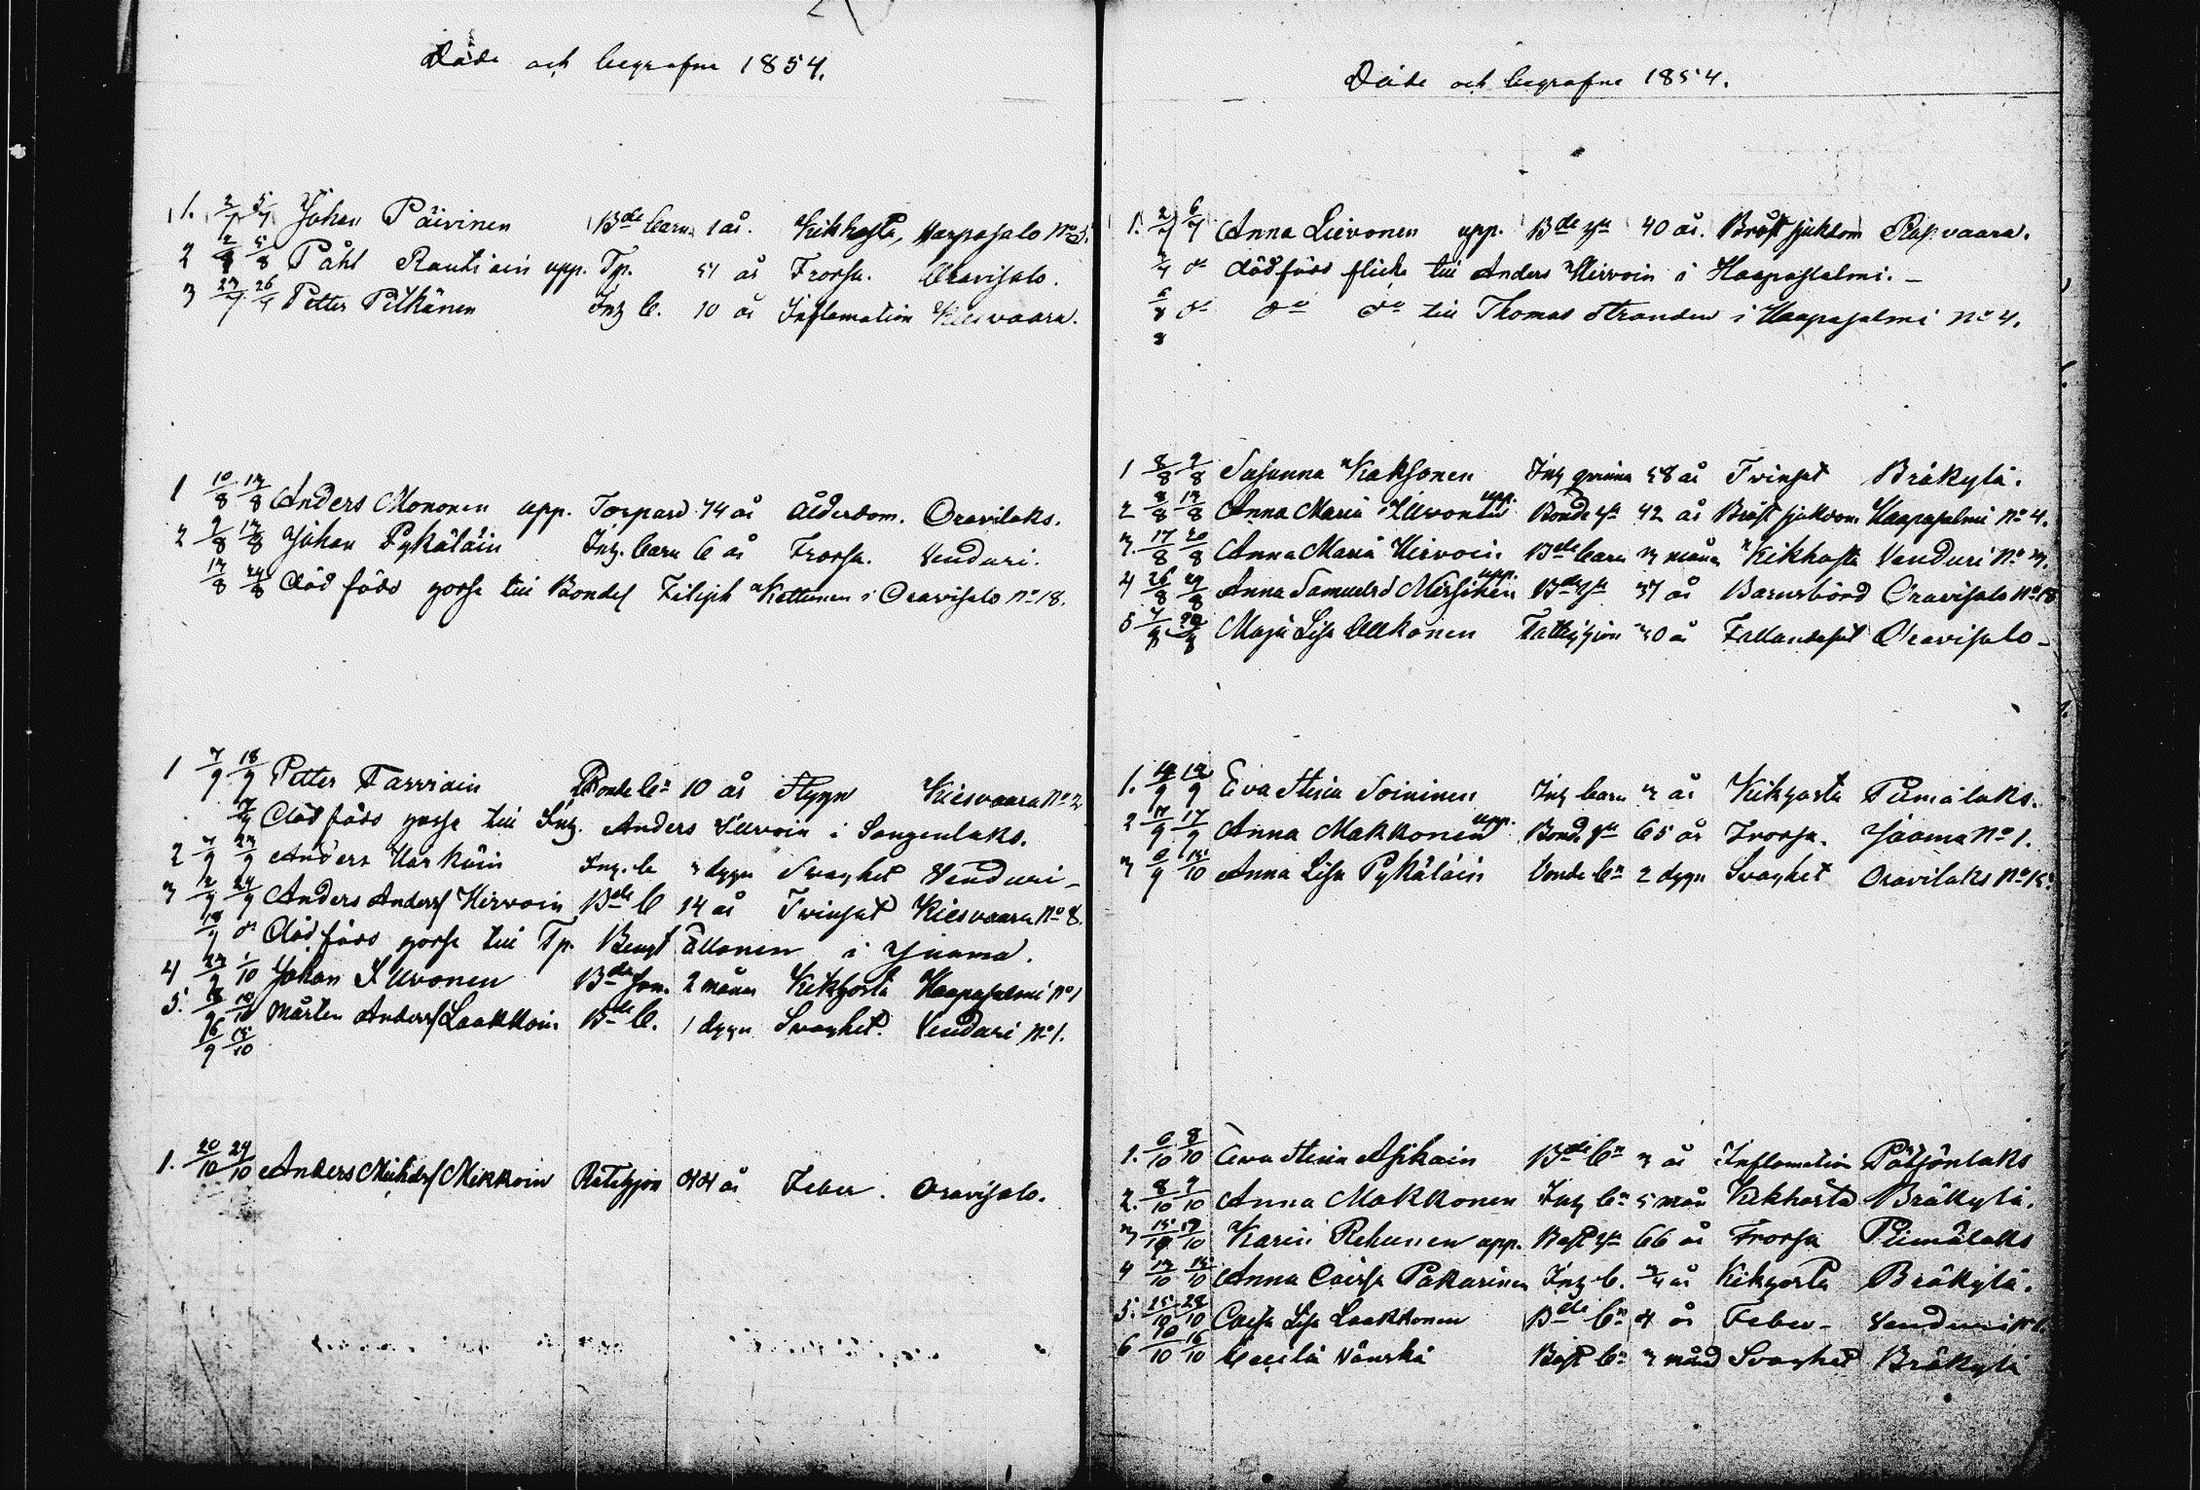 Döde och begrafne 1854.
1. 2/7 5/7 Johan Päivinen Bde barn 1 år. Kikhosta, Haapasalo No 5.
2 2/8 5/8 Påhl Rautiain upp. Tp. 51 år Frossa. Oravisalo.
3 23/7 26/7 Petter Pitkänen Inh b. 10 år Inflamation Kiesvaara.
1 10/8 13/8 Anders Mononen upp. Torpare 74 år Ålderdom. Oravilaks.
2 9/8 13/8 Johan Pykäläin Inh. barn 6 år Frossa. Venduri.
13/8 24/8 död född gosse till Bonden Filiph Kettunen i Oravisalo No 18.
1 7/9 18/9 Petter Tarviain Bonde bn 10 år Stygn Kiesvaara No 2
död född gosse till Inh. Anders Ilvoin i Sangenlaks.
2 7/9 23/9 Anders Harkoin Inh. b 3 dygn Svaghet Venduri -
3 12/9 24/9 Anders Anderss Hirvoin Bde b 14 år Tvinsot Kiesvaara No 8.
18/9 do Död född gosse till Tp. Bengt Ellonen i Jaama.
4 23/9 1/10 Johan Ilvonen Bde son. 2 månar Kikhosta Haapasalmi No 1
5. Mårten Anderss Laakkoin Bde b. 1 dygn Svaghet. Venduri No 1.
16/9 15/10
1. 20/10 29/10 Anders Michelss Mikkoin 44 år Feber. Oravisalo.
Döde och begrafne 1854.
1. 2/7 6/7 Anna Lievonen upp. Bde hu 40 år. Bröstsjukdom Raswaara.
do dödfödd flicka till Anders Hirvoin i Haapasalmi. -
do do do till Thomas Strandén i Haapasalmi No 4.
1 8/8 9/8 Susanna Kaksonen Inh qvinna 58 år Tvinsot Bråkylä.
2 8/8 13/8 Anna Maria Ilvonen upp. Bonde hu 42 år Bröstsjukdom Haapasalmi No 4.
3. 17/8 20/8 Anna Maria Hirvoin Bde barn 3 månar Kikhosta Venduri No 3.
4 26/8 29/8 Anna Samuelsd Mersikein upp. Bde hu 37 år Barnsbörd Oravisalo No 18
5 Maja Lisa Ollkonen Fattighjon 30 år Fallandesot Oravisalo -
1. Eva Stina Soininen Inh barn 3 år Kikhosta Piimälaks.
2 17/9 17/9 Anna Makkonen upp. Bond. hu 65 år Frossa. Jaama No 1.
3 9/9 15/10 Anna Lisa Pykäläin Bonde bn 2 dygn Svaghet Oravilaks No 15.
1. 6/10 8/10 Eva Stina Asikain Bde bn 3 år Inflamation Pötsönlaks
2. 8/10 9/10 Anna Makkonen Inh bn 5 mån Kikhosta Bråkylä.
3 15/10 19/10 Karin Rehunen upp. hu 66 år Frossa Piimälaks
4 13/10 15/10 Anna Caisa Pakarinen Inh b. 3/4 år Kikhosta Bråkylä.
5. 25/10 28/10 Caisa Lisa Laakkonen Bde bn 4 år Feber - Venduri No 1.
6 10/10 16/10 Cecilia bn 3 månd Svaghet Bråkylä